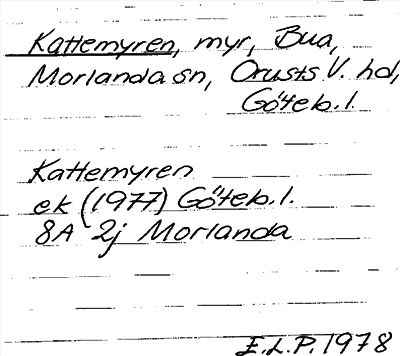 Kattemyren, myr, Bua,
Morlanda sn, Orusts V. hd,
Göteb. l.
Kattemyren
ek (1977) Göteb. l.
8A 2j Morlanda
E.L.P. 1978